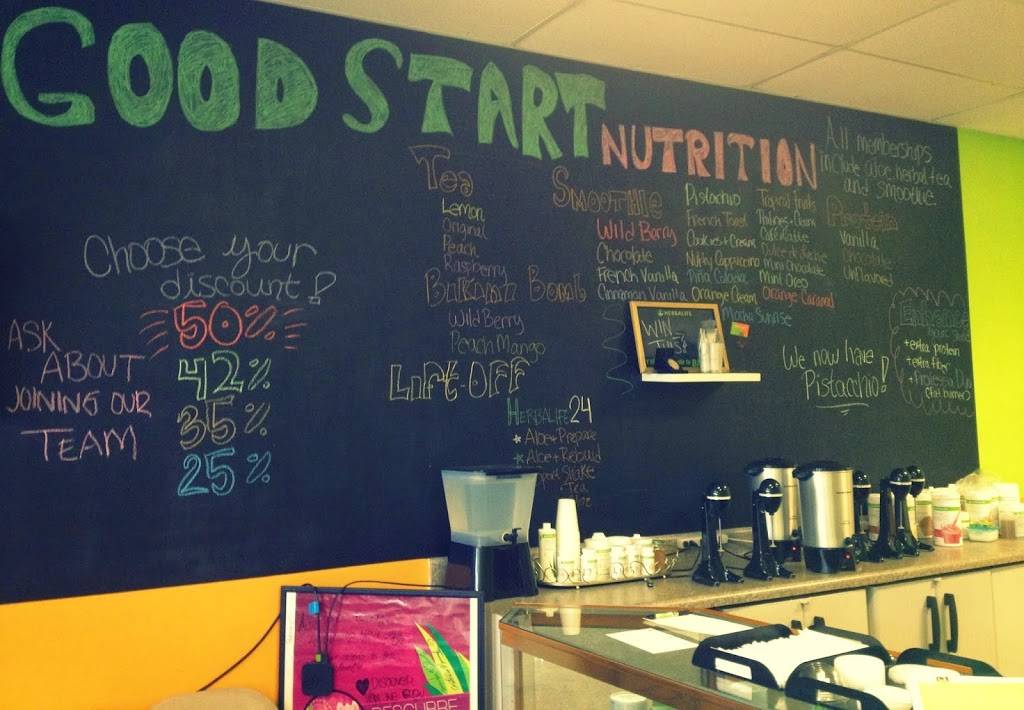 GOOD START
NUTRITION
All memberships
include aloe, herbal tea
and smoothie
Tea
Lemon
Original
Peach
Raspberry
Wild Berry
Peach Mango
LiFt-OFF
Smoothie
Wild Berry
Chocolate
French Vanilla
Cinnamon Vanilla
Pistachio
French Toast
Cookies + Cream
Nutty Cappuccino
Piña Colada
Orange Cream
Mocha Sunrise
Tropical fruits
Café Latte
Dulce de leche
Mint Chocolate
Mint Oreo
Orange Caramel
Protein
Vanilla
Chocolate
Unflavored
Choose your
discount!
50%
42%
35%
25%
ASK
ABOUT
JOINING OUR
TEAM
HERBALIFE24
* Aloe + Prepare
* Aloe + Rebuild
Shake
Tea
HERBALIFE
WIN
THIS!
We now have
Pistacchio!
+ extra protein
+ extra fiber
(fat burner)
DISCOVER
DESCUBRE